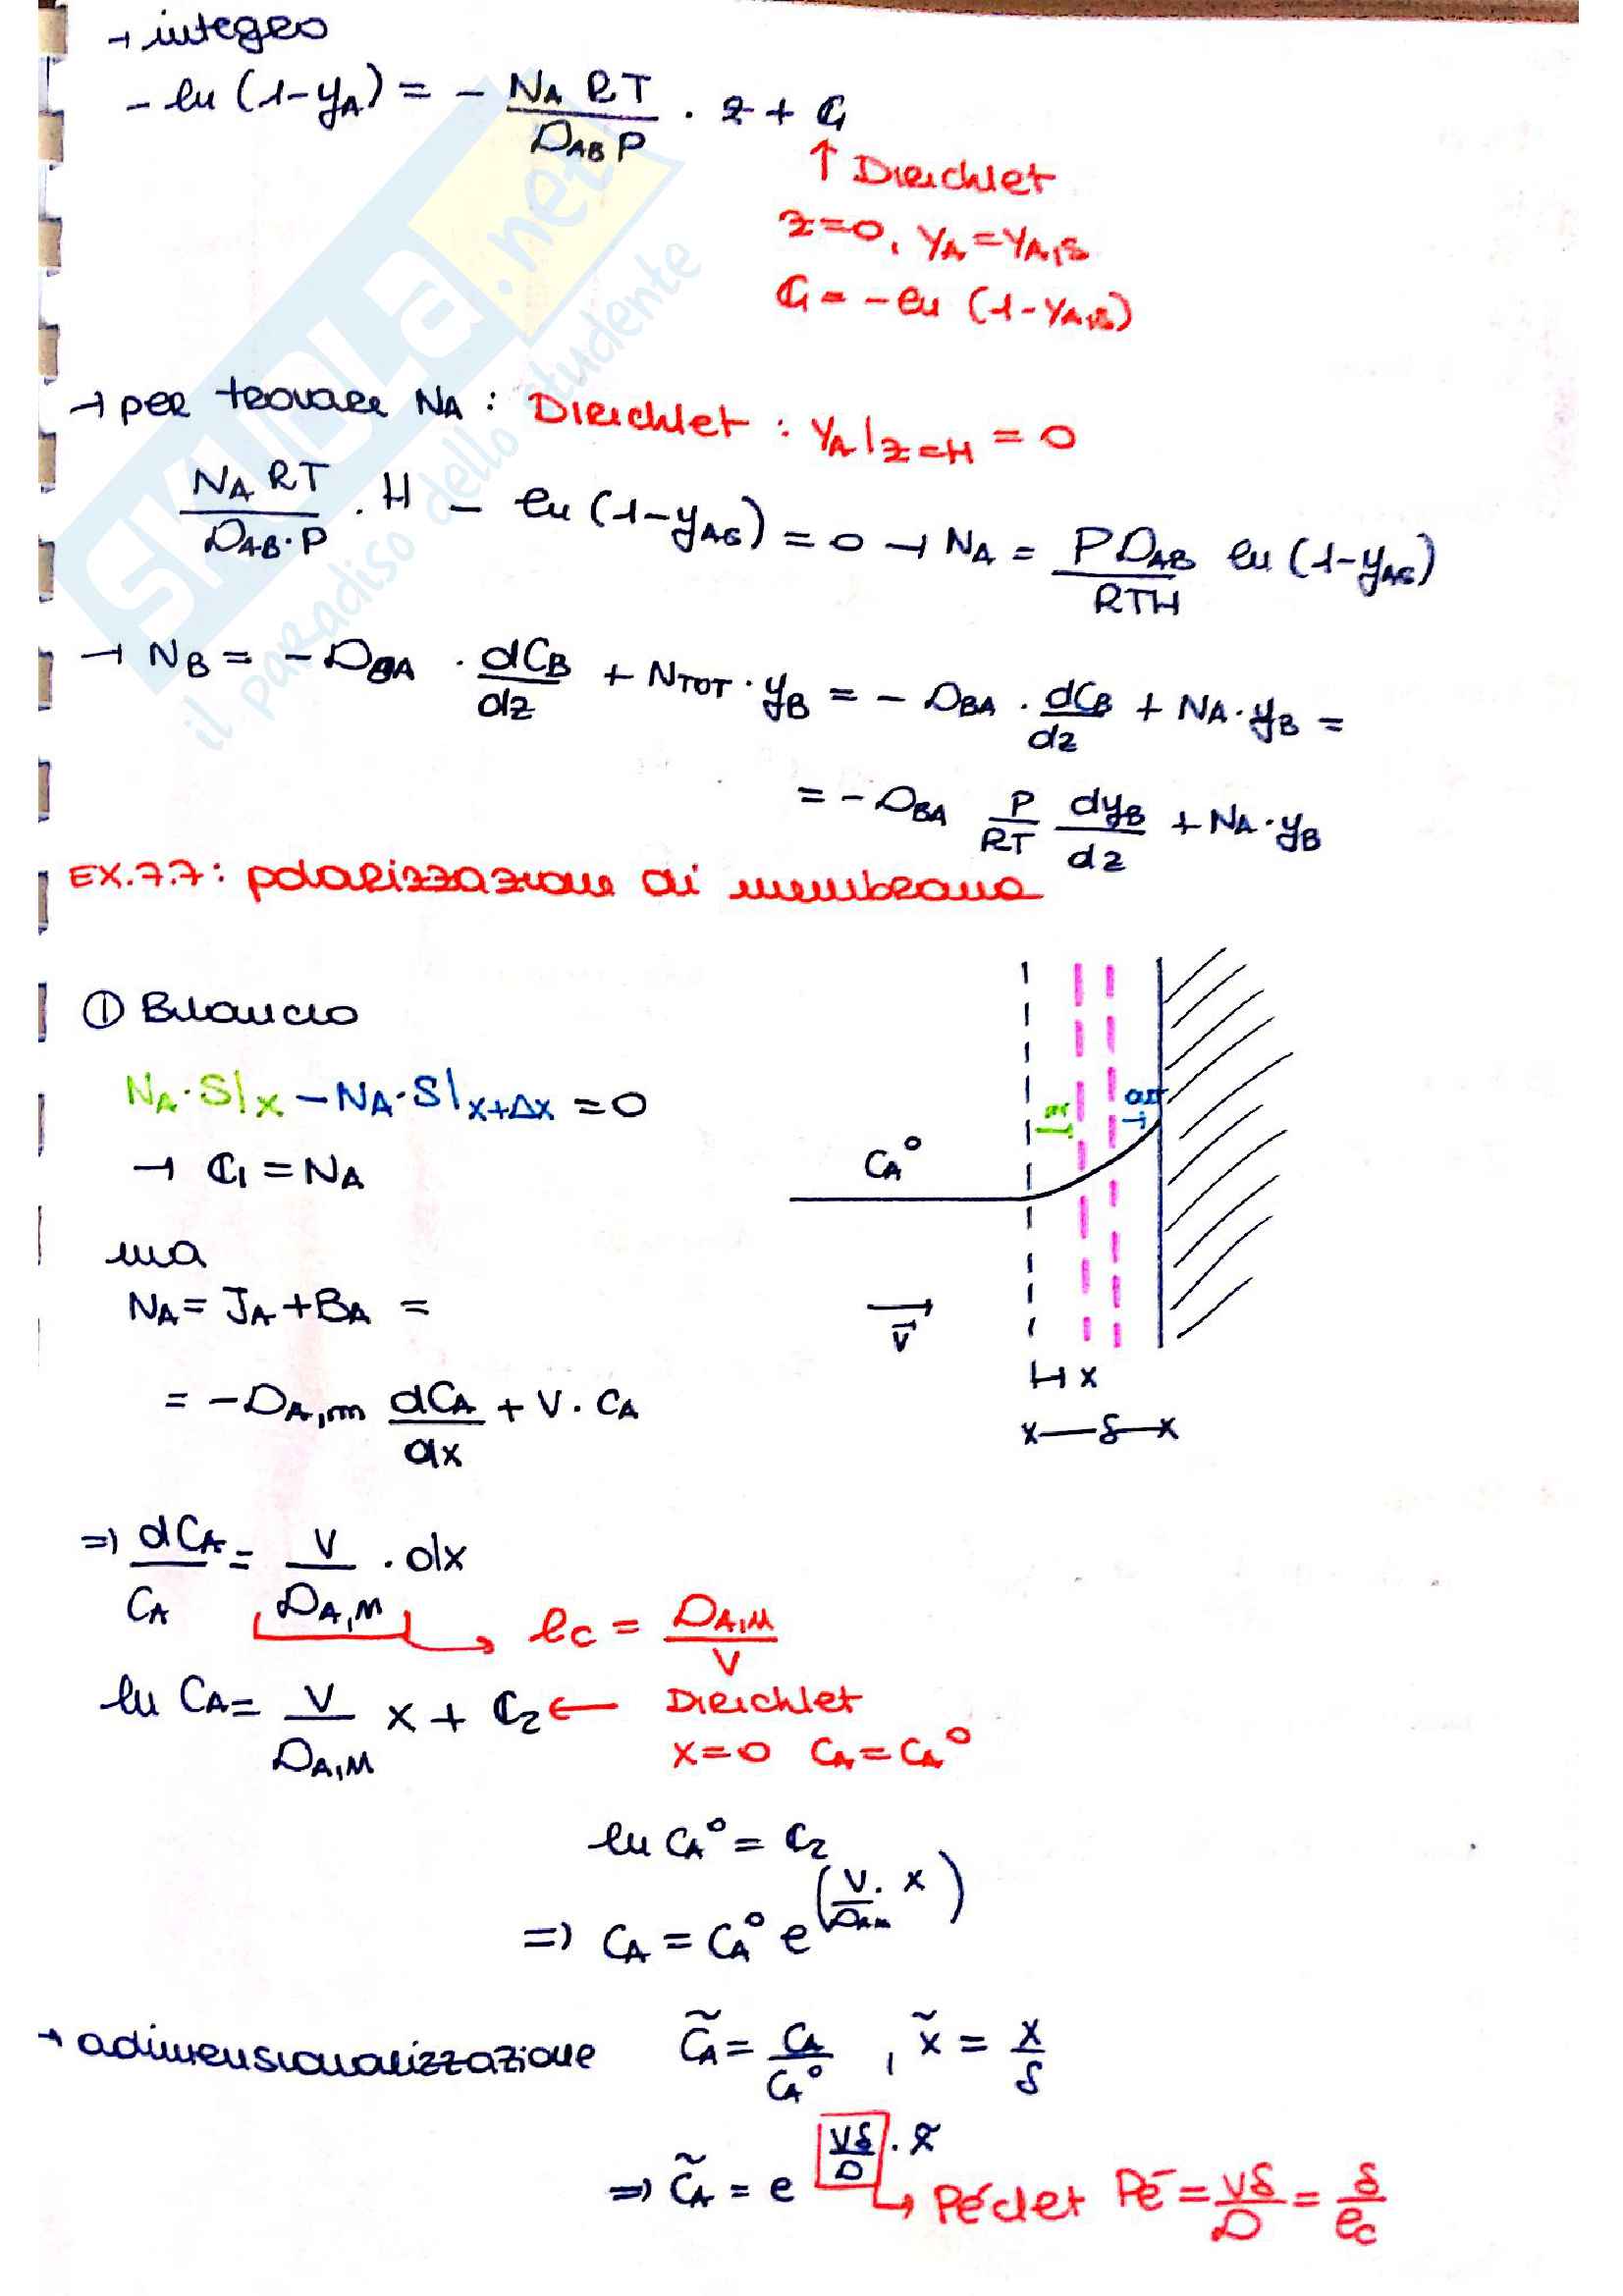 → integro
- ln (1-yA) = - NA RT / DAB P · z + C1
↑ Dirichlet
z=0, yA = yA,s
C1 = - ln (1-yA,s)
→ per trovare NA : Dirichlet : yA|z=H = 0
NA RT / DAB·P · H - ln (1-yAS) = 0 → NA = P DAB / RTH ln (1-yAS)
→ NB = - DBA · dCB/dz + NTOT · yB = - DBA · dCB/dz + NA · yB =
= - DBA P/RT dyB/dz + NA · yB
EX.7.7: polarizzazione di membrana
① Bilancio
NA·S|x - NA·S|x+Δx = 0
→ C1 = NA
ma
NA = JA + BA =
= - DA,m dCA/dx + V · CA
IN
OUT
CA°
v
x
x—δ—x
⇒ dCA/CA = V/DA,M · dx
lc = DA,M / V
ln CA = V/DA,M x + C2 ← Dirichlet
x=0 CA = CA°
ln CA° = C2
⇒ CA = CA° e^(V/DAM · x)
→ adimensionalizzazione C̃A = CA/CA° , x̃ = x/δ
⇒ C̃A = e^(Vδ/D · x̃) → Péclet Pé = Vδ/D = δ/lc
SKUOLA.net
il paradiso dello studente